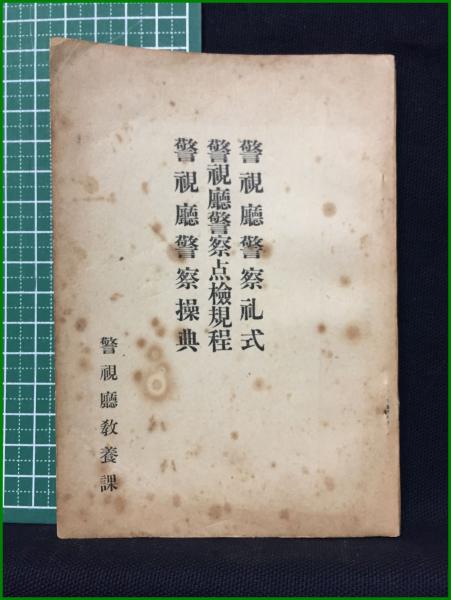 警視廳警察礼式
警視廳警察点檢規程
警視廳警察操典
警視廳教養課